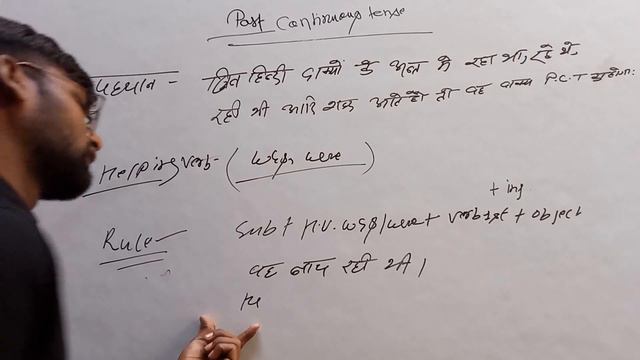 Past Continuous tense
पहचान - जिन हिन्दी वाक्यों के अन्त मे रहा था, रहे थे,
रही थी आदि शब्द आते हो तो वह वाक्य P.C.T
Helping verb - (was, were)
+ ing
Rule - Sub + H.V. was/were + verb 1st + object
वह नाच रही थी।